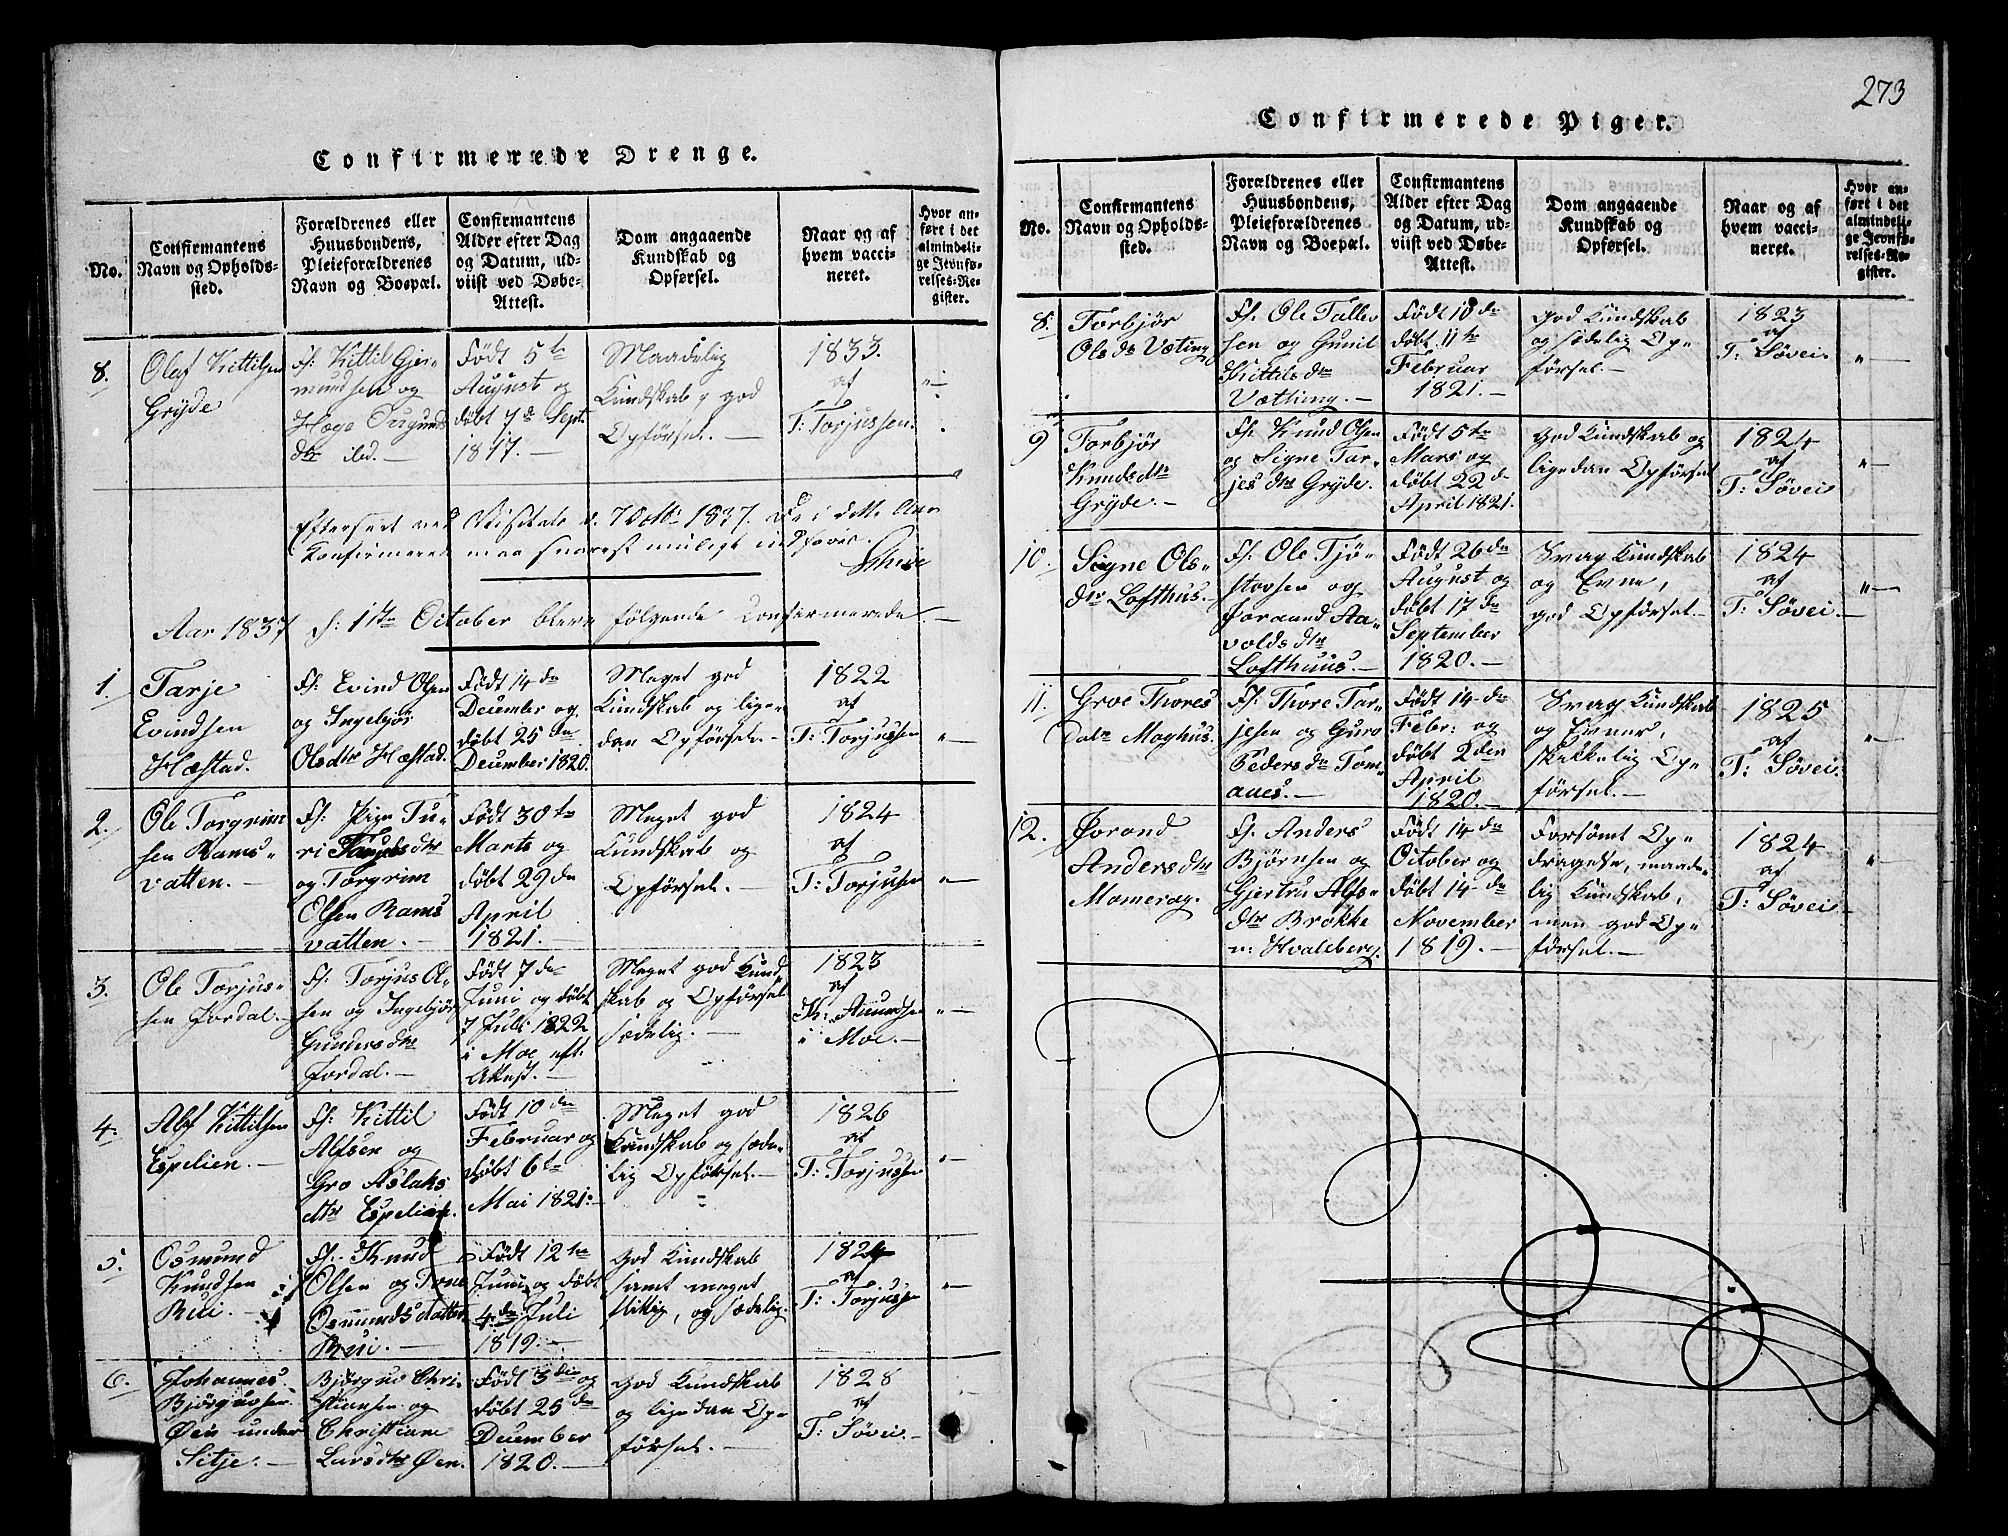 Confirmerede Drenge.
No.
Confirmantens
Navn og Opholds-
sted.
Forældrenes eller
Huusbondens,
Pleieforældrenes
Navn og Boepæl.
Confirmantens
Alder efter Dag
og Datum, ud-
viist ved Døbe-
Attest.
Dom angaaende
Kundskab og
Opførsel.
Naar og af
hvem vacci-
neret.
Hvor an-
ført i det
almindeli-
ge Jevnfø-
relses-Re-
gister.
8.
Olaf Kittilsen
Gryde
F: Kittil Gjer-
mundsen og
Hæge
dtr ibd. -
Født 5te
August og
døbt 7de Sept.
1817. -
Maadelig
Kundskab, god
Opførsel. -
1833.
af
T: Torjussen.
"
Efterseet ved Visitats d. 7 Octb 1837. De i dette Aar
Konfirmerede maa snarest muligt indføres.
Aar 1837 d: 1ste October bleve følgende Confirmerede. -
1.
Tarje
Evindsen
Hæstad.
F: Evind Olsen
og Ingebjør
Olsdtr Hæstad.
Født 14de
December og
døbt 25de
December 1820.
Meget god
Kundskab og lige-
dan Opførsel. -
1822
af
T: Torjussen
" -
2.
Ole Torgrim
sen Rams-
vatten. -
F: Pige Tu-
ri Tarjesdtr
og Torgrim
Olsen Rams
vatten. -
Født 30te
Marts og
døbt 29de
April
1821. -
Meget god
Kundskab og
Opførsel. -
1824
af
T: Torjussen
" -
3.
Ole Torjus-
sen Jordal. -
F: Torjus Ol-
sen og Ingebjør
Gunders dtr
Jordal. -
Født 7de
Juni og døbt
7 Juli 1822
i Moe eft.
Attest. -
Meget god Kund-
skab og Opførsel
sædelig. -
1823
af
K: Aamundsen
i Moe. -
" -
4.
Alf Kittilsen
Espelien. -
F: Kittil
Alfsen og
Gro Aslaks
dtr Espelien.
Født 10de
Februar og
døbt 6te
Mai 1821. -
Meget god
Kundskab og sæde-
lig Opførsel. -
1826
af
T: Torjussen
" -
5.
Osmund
Knudsen
Rui. -
F: Knud
Olsen og Tone
Osmunds datter
Rui. -
Født 12te
Juni og døbt
4de Juli
1819. -
God Kundskab
samt meget
flittig, og sædelig.
1824
af
T: Torjussen
" -
6.
Johannes
Bjørgusen
Øen under
Sitje. -
Bjørgus Chri-
stiansen og
Christiane
Larsdtr Øen.
Født 3die og
døbt 25de
December
1820. -
God Kundskab
og ligedan Op-
førsel. -
1828
af
T: Søvei. -
273
Confirmerede Piger.
No.
Confirmantens
Navn og Opholds-
sted.
Forældrenes eller
Huusbondens,
Pleieforældrenes
Navn og Boepæl.
Confirmantens
Alder efter Dag
og Datum, ud-
viist ved Døbe-
Attest.
Dom angaaende
Kundskab og
Opførsel.
Naar og af
hvem vacci-
neret.
Hvor an-
ført i det
almindeli-
ge Jevnfø-
relses-Re-
gister.
8.
Torbjør
Olsdtr Væting
F: Ole Talles
sen og Gunil
Kittilsdtr
Vætling. -
Født 10de
døbt 11te
Februar
1821. -
God Kundskab
og sædelig Op-
førsel. -
1823
af
T: Søvei
" -
9
Torbjør
Knudsdtr
Gryde. -
F: Knud Olsen
og Signe Tar-
jesdtr Gryde.
Født 5te
Mars og
døbt 22de
April 1821.
God Kundskab og
ligedan Opførsel
1824
af
T: Søvei
" -
10.
Signe Ols-
dtr Lofthus. -
F: Ole Tjø-
stovsen og
Joraand Aa-
volds dtr
Lofthuus. -
Født 26de
August og
døbt 17de
September
1820. -
Svag Kundskab
og Evne,
god Opførsel. -
1824
af
T: Søvei.
" -
11.
Groe Thores
datr Moghus.
F: Thore Tar-
jesen og Guro
Peders dtr Tom-
aues. -
Født 14de
Febr: og
døbt 2den
April
1820. -
Svag Kundskab
og Evner,
skikkelig Op-
førsel. -
1825
af
T: Søvei.
" -
12.
Jorand
Anders dtr
Momrag. -
F: Anders
Bjørnsen og
Gjertru Alfs-
dtr Brokke
u: Hvalsberg.
Født 14de
October og
døbt 14de
November
1819. -
Forsømt Op-
dragelse, maade-
lig Kundskab,
men god Op-
førsel. -
1824
af
T: Søvei -
"